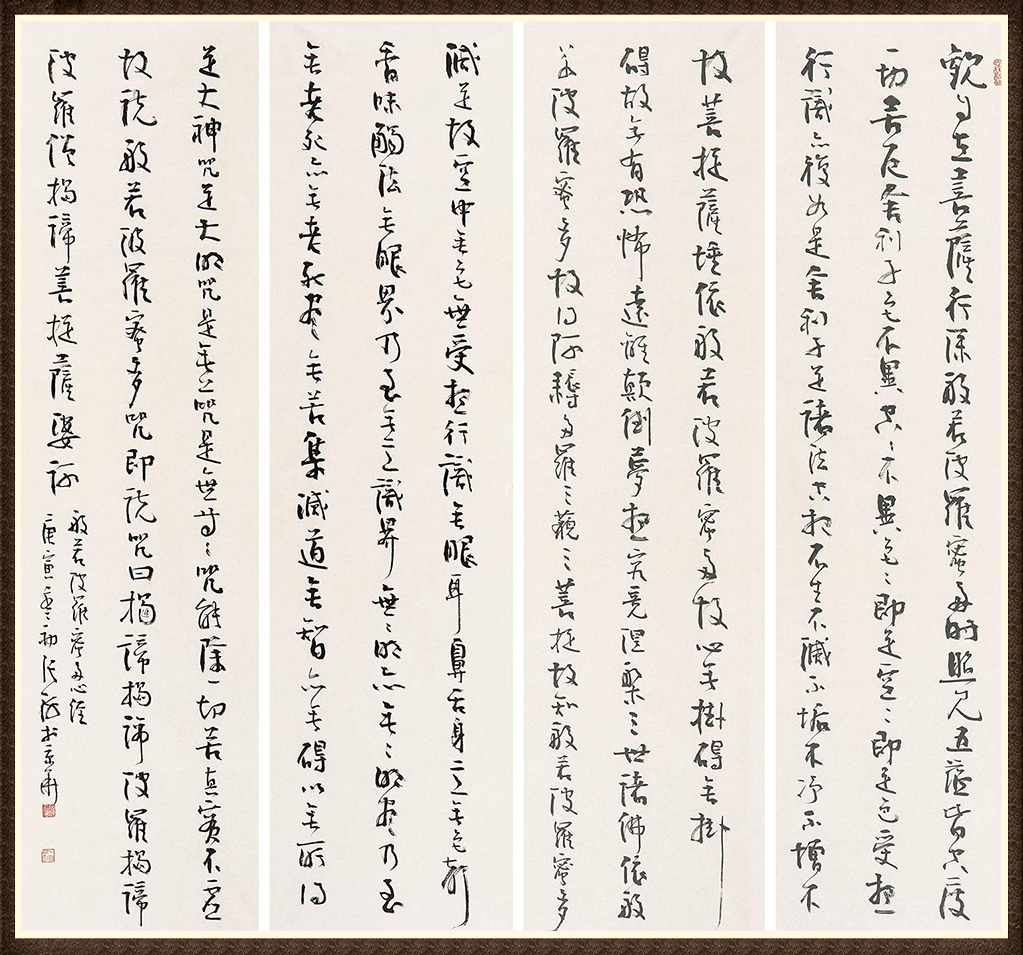 觀自在菩薩行深般若波羅蜜多時照見五蘊皆空度
一切苦厄舍利子色不異空〻不異色〻即是空〻即是色受想
行識亦復如是舍利子是諸法空相不生不滅不垢不淨不增不
故菩提薩埵依般若波羅蜜多故心無掛碍無掛
碍故無有恐怖遠離顛倒夢想究竟涅槃三世諸佛依般
若波羅蜜多故得阿耨多羅三藐三菩提故知般若波羅蜜多
減是故空中無色無受想行識無眼耳鼻舌身意無色聲
香味觸法無眼界乃至無意識界無〻明亦無〻明盡乃至
無老死亦無老死盡無苦集滅道無智亦無碍以無所得
是大神咒是大明咒是無上咒是無等〻咒能除一切苦真實不虛
故說般若波羅蜜多咒即說咒曰揭諦揭諦波羅揭諦
波羅僧揭諦菩提薩婆訶
般若波羅蜜多心經
庚寅 初 書京華